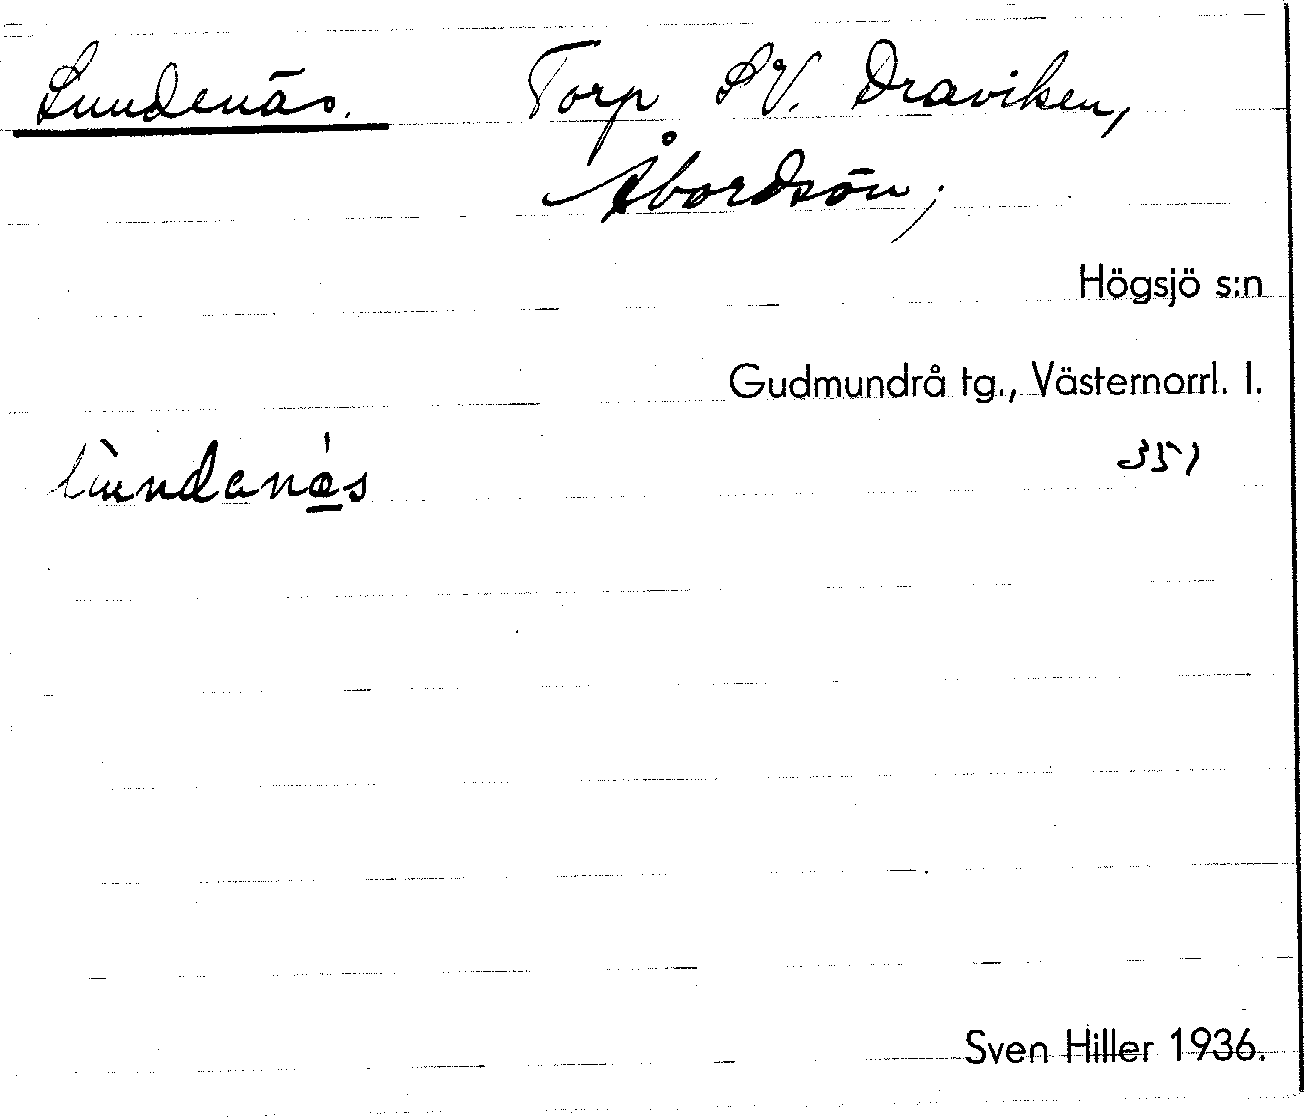 Lundenäs. Torp SV. Draviken,
Åbordsön,
Högsjö s:n
Gudmundrå tg., Västernorrl. l.
lu̇ndanás 351
Sven Hiller 1936.